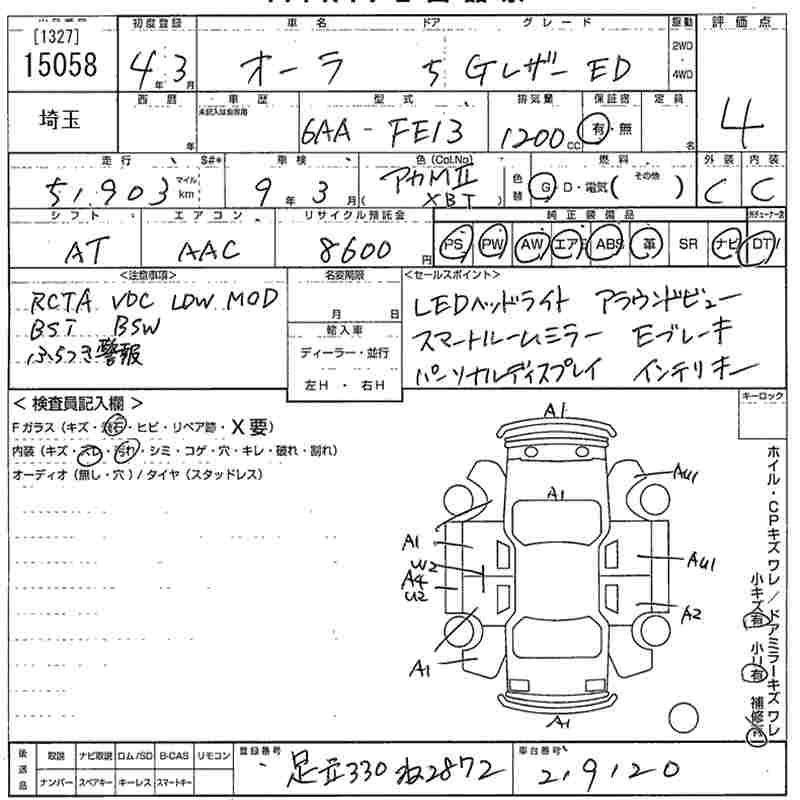 [1327]
15058
埼玉
初度登録 車名 ドア グレード 駆動 評価点
4年3月 オーラ 5 Gレザー ED 2WD・4WD
4
西暦 車歴 型式 排気量 保証書 定員
年 未記入は自家用 6AA-FE13 1200cc 有・無 名
走行 S#* 車検 色(Col.No) 燃料 外装 内装
51,903 マイル km 9年3月 (アカMⅡ XBT) 色替 G・D・電気( その他 ) C C
シフト エアコン リサイクル預託金 純正装備品
AT AAC 8600円 PS PW AW エアB ABS 革 SR ナビ DT/
<注意事項> 名変期限 <セールスポイント>
RCTA VDC LDW MOD
BST BSW
ふらつき警報
月 日
輸入車
ディーラー・並行
左H ・ 右H
LEDヘッドライト アラウンドビュー
スマートルームミラー Eブレーキ
パーソナルディスプレイ インテリキー
＜検査員記入欄＞ キーロック
Fガラス(キズ・飛石・ヒビ・リペア跡・X要)
内装(キズ・スレ・汚れ・シミ・コゲ・穴・キレ・破れ・割れ)
オーディオ(無し・穴)/タイヤ(スタッドレス)
A1
AU1
A1
A1
W2
A4
U2
AU1
A2
A1
A1
ホイル・CPキズ ワレ/ドアミラーキズ ワレ
小キズ有 小U有 補修有
後送品 取説 ナビ取説 ロム/SD B-CAS リモコン
ナンバー スペアキー キーレス スマートキー
登録番号 足立330ね2872
車台番号 219120